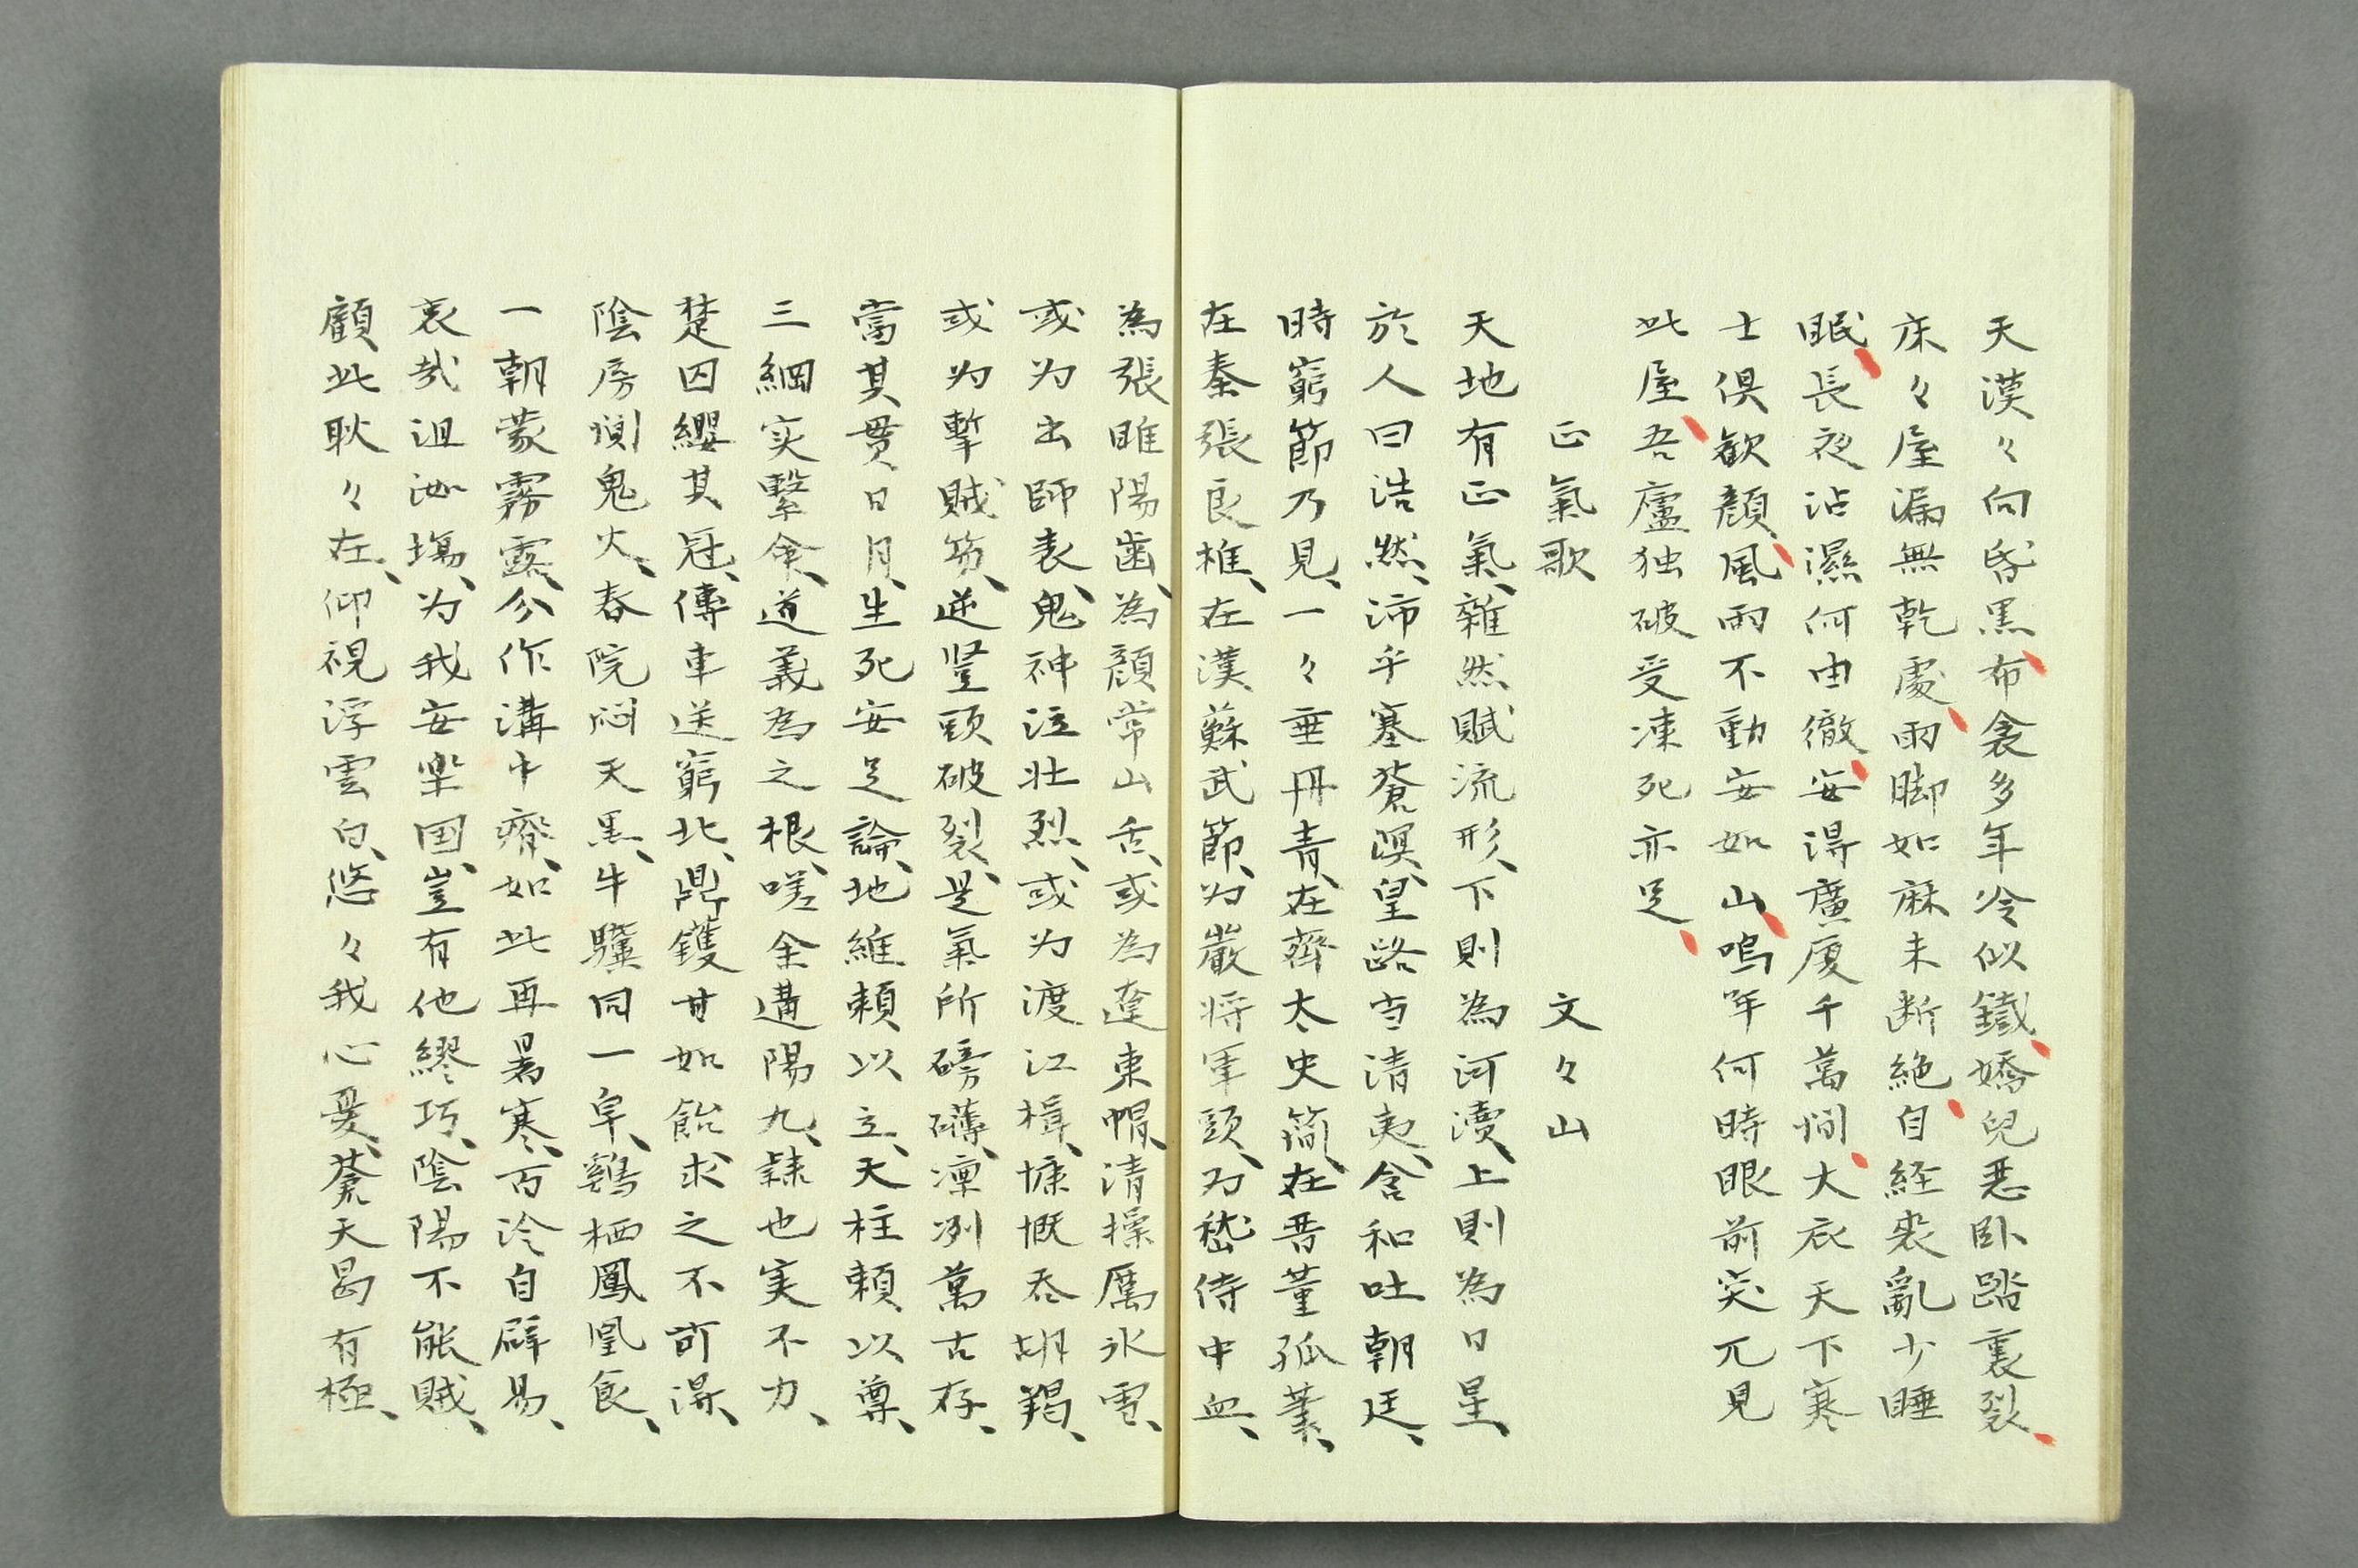 天漢々向昏黒、布衾多年冷似鐵、嬌兒悪臥踏裏裂、
床々屋漏無乾處、雨脚如麻未断絶、自経喪亂少睡
眠、長夜沾濕何由徹、安得廣廈千萬間、大衣天下寒
士倶歓顔、風雨不動安如山、嗚呼何時眼前突兀見
此屋、吾廬独破受凍死亦足、
正氣歌　文々山
天地有正氣、雜然賦流形、下則為河瀆、上則為日星、
於人曰浩然、沛乎塞蒼溟、皇路当清夷、含和吐朝廷、
時窮節乃見、一々垂丹青、在齊太史簡、在晋董孤筆、
在秦張良椎、在漢蘇武節、为嚴将軍頭、为嵇侍中血、
為張睢陽齒、為顔常山舌、或為遼東帽、清操厲氷雪、
或为出師表、鬼神泣壮烈、或为渡江楫、慷慨吞胡羯、
或为撃賊笏、逆竪頭破裂、是氣所磅礴、凛冽萬古存、
當其貫日月、生死安足論、地維頼以立、天柱頼以尊、
三綱実繋命、道義為之根、嗟余遘陽九、隷也実不力、
楚囚纓其冠、傳車送窮北、鼎鑊甘如飴、求之不可得、
陰房闃鬼火、春院閟天黒、牛驥同一皁、鷄栖鳳凰食、
一朝蒙霧露、分作溝中瘠、如此再暑寒、百沴自辟易、
哀哉沮洳塲、为我安楽国、豈有他繆巧、陰陽不能賊、
顧此耿々在、仰視浮雲白、悠々我心憂、蒼天曷有極、